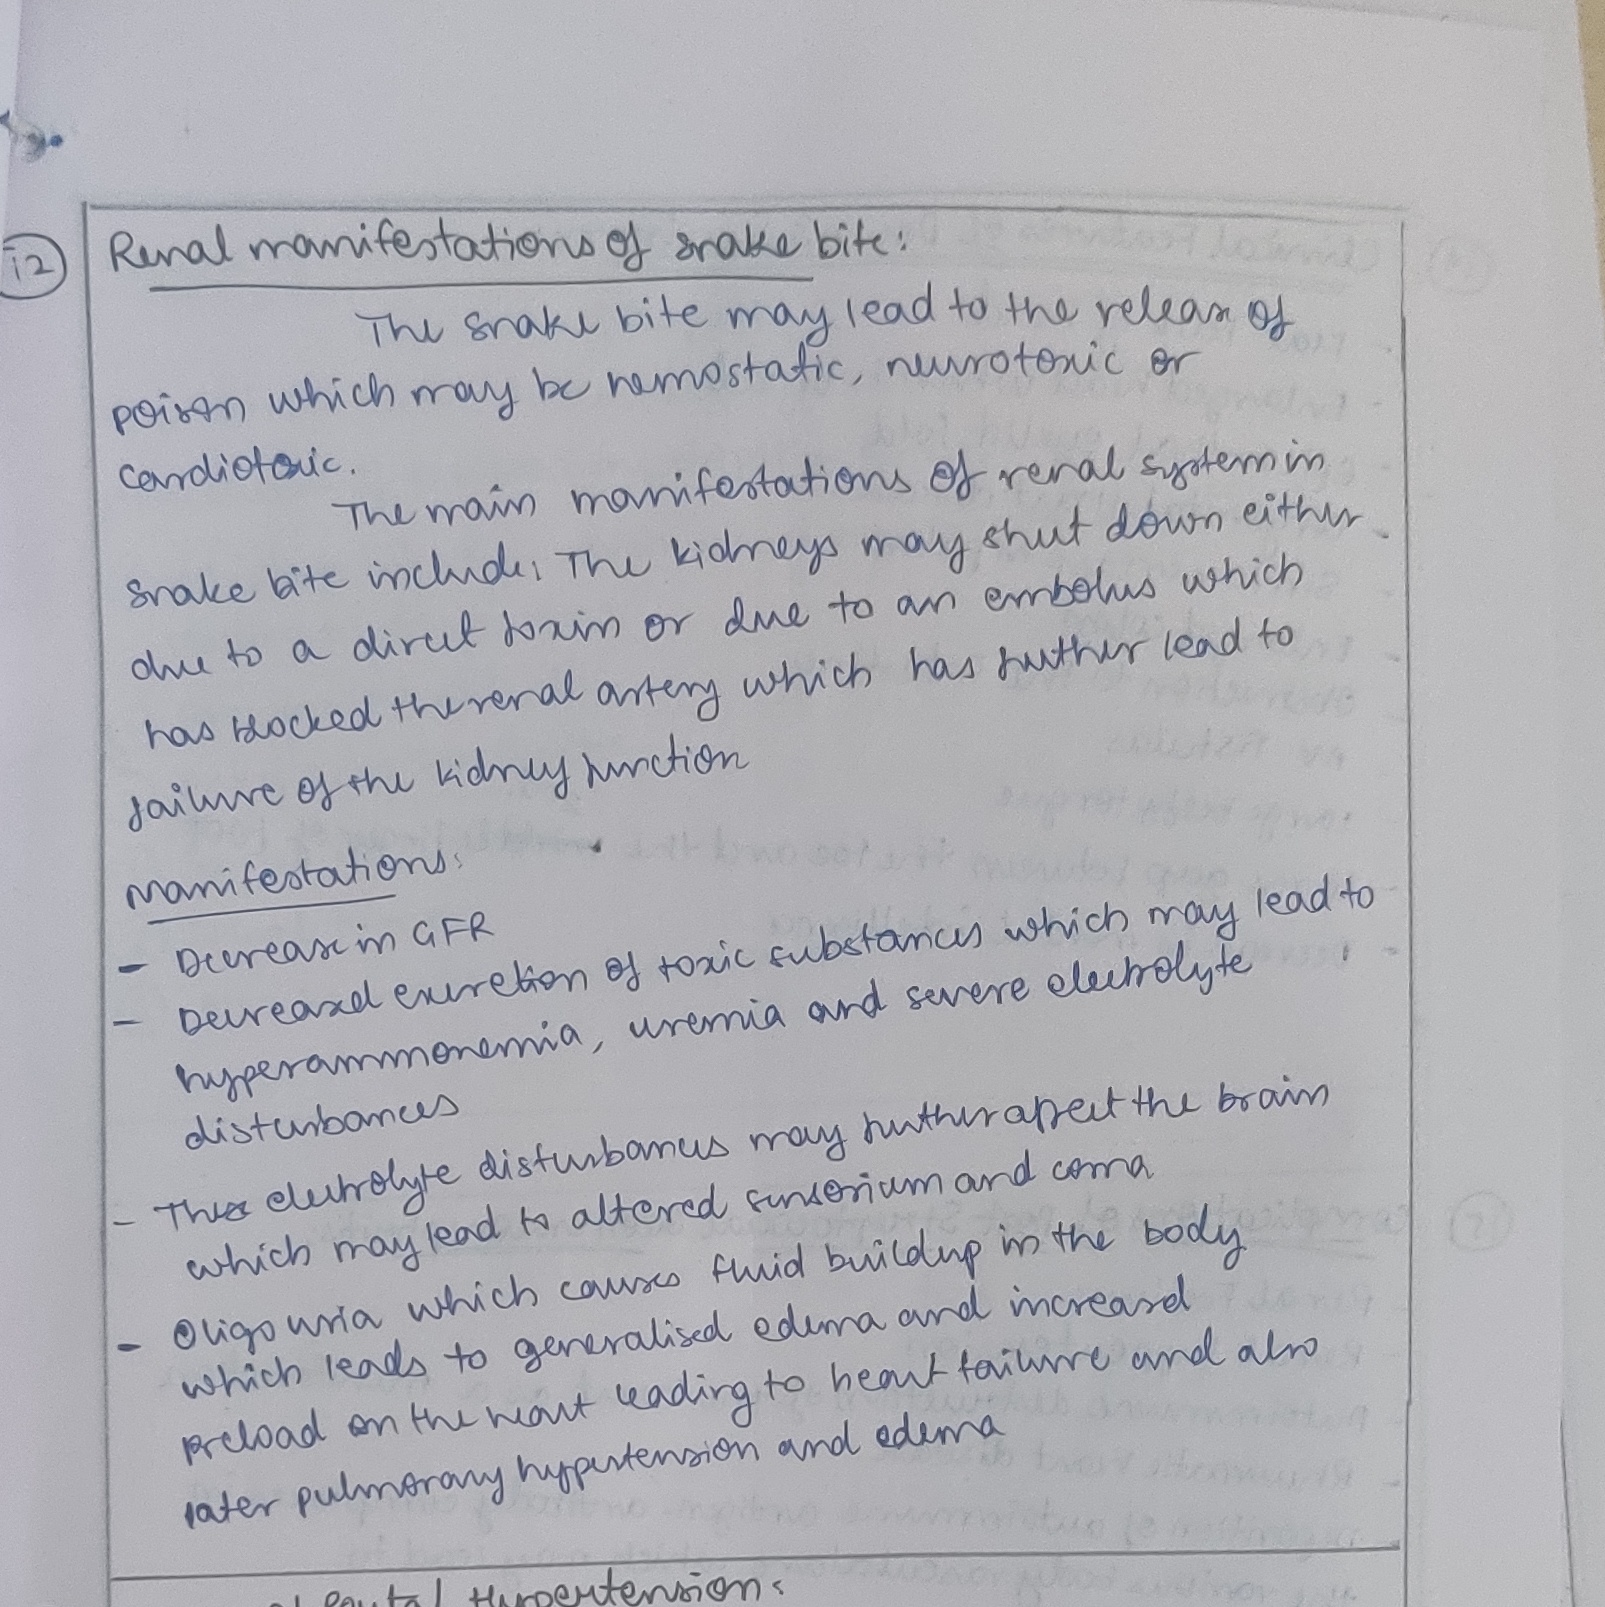 12
Renal manifestations of snake bite:
The snake bite may lead to the release of
poison which may be hemostatic, neurotoxic or
cardiotoxic.
The main manifestations of renal system in
snake bite include; The kidneys may shut down either
due to a direct toxin or due to an embolus which
has blocked the renal artery which has further lead to
failure of the kidney function
Manifestations:
- Decrease in GFR
- Decreased excretion of toxic substances which may lead to
hyperammonemia, uremia and severe electrolyte
disturbances
- These electrolyte disturbances may further affect the brain
which may lead to altered sensorium and coma
- Oligouria which causes fluid buildup in the body
which leads to generalised edema and increased
preload on the heart leading to heart failure and also
later pulmonary hypertension and edema
Hypertension: